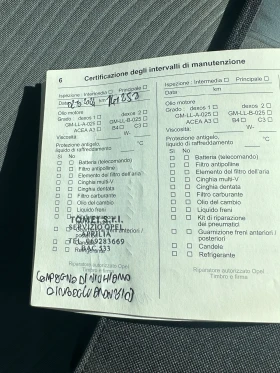 6 Certificazione degli intervalli di manutenzione
Ispezione: Intermedia ☐ Principale ☐
Data km
Olio motore
Grado: dexos 1 ☐ dexos 2 ☐
GM-LL-A-025 ☐ GM-LL-B-025 ☐
ACEA A3 ☐ B4 ☐ C3 ☐
Viscosità: W-
Protezione antigelo,
liquido di raffreddamento: °C
Sì No
☐ ☐ Batteria (telecomando)
☐ ☐ Filtro antipolline
☐ ☐ Elemento del filtro dell'aria
☐ ☐ Cinghia multi-V
☐ ☐ Cinghia dentata
☐ ☐ Filtro carburante
☐ ☐ Olio del cambio
☐ ☐ Liquido freni
TOMEI S.r.l.
SERVIZIO OPEL
APRILIA
Guarnizione freni anteriori /
posteriori
Candele
Refrigerante
Riparatore autorizzato Opel
Timbro e firma
Ispezione: Intermedia ☐ Principale ☐
Data km
Olio motore
Grado: dexos 1 ☐ dexos 2 ☐
GM-LL-A-025 ☐ GM-LL-B-025 ☐
ACEA A3 ☐ B4 ☐ C3 ☐
Viscosità: W-
Protezione antigelo,
liquido di raffreddamento: °C
Sì No
☐ ☐ Batteria (telecomando)
☐ ☐ Filtro antipolline
☐ ☐ Elemento del filtro dell'aria
☐ ☐ Cinghia multi-V
☐ ☐ Cinghia dentata
☐ ☐ Filtro carburante
☐ ☐ Olio del cambio
☐ ☐ Liquido freni
☐ ☐ Kit di riparazione
dei pneumatici
☐ ☐ Guarnizione freni anteriori /
posteriori
☐ ☐ Candele
☐ ☐ Refrigerante
Riparatore autorizzato Opel
Timbro e firma